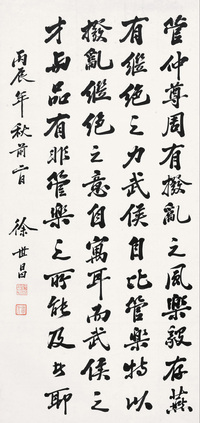 管仲尊周有撥亂之風樂毅存燕
有繼絕之力武侯自比管樂特以
撥亂繼絕之意自寓耳而武侯之
才與品有非管樂之所能及者耶
丙辰年秋前一日
徐世昌